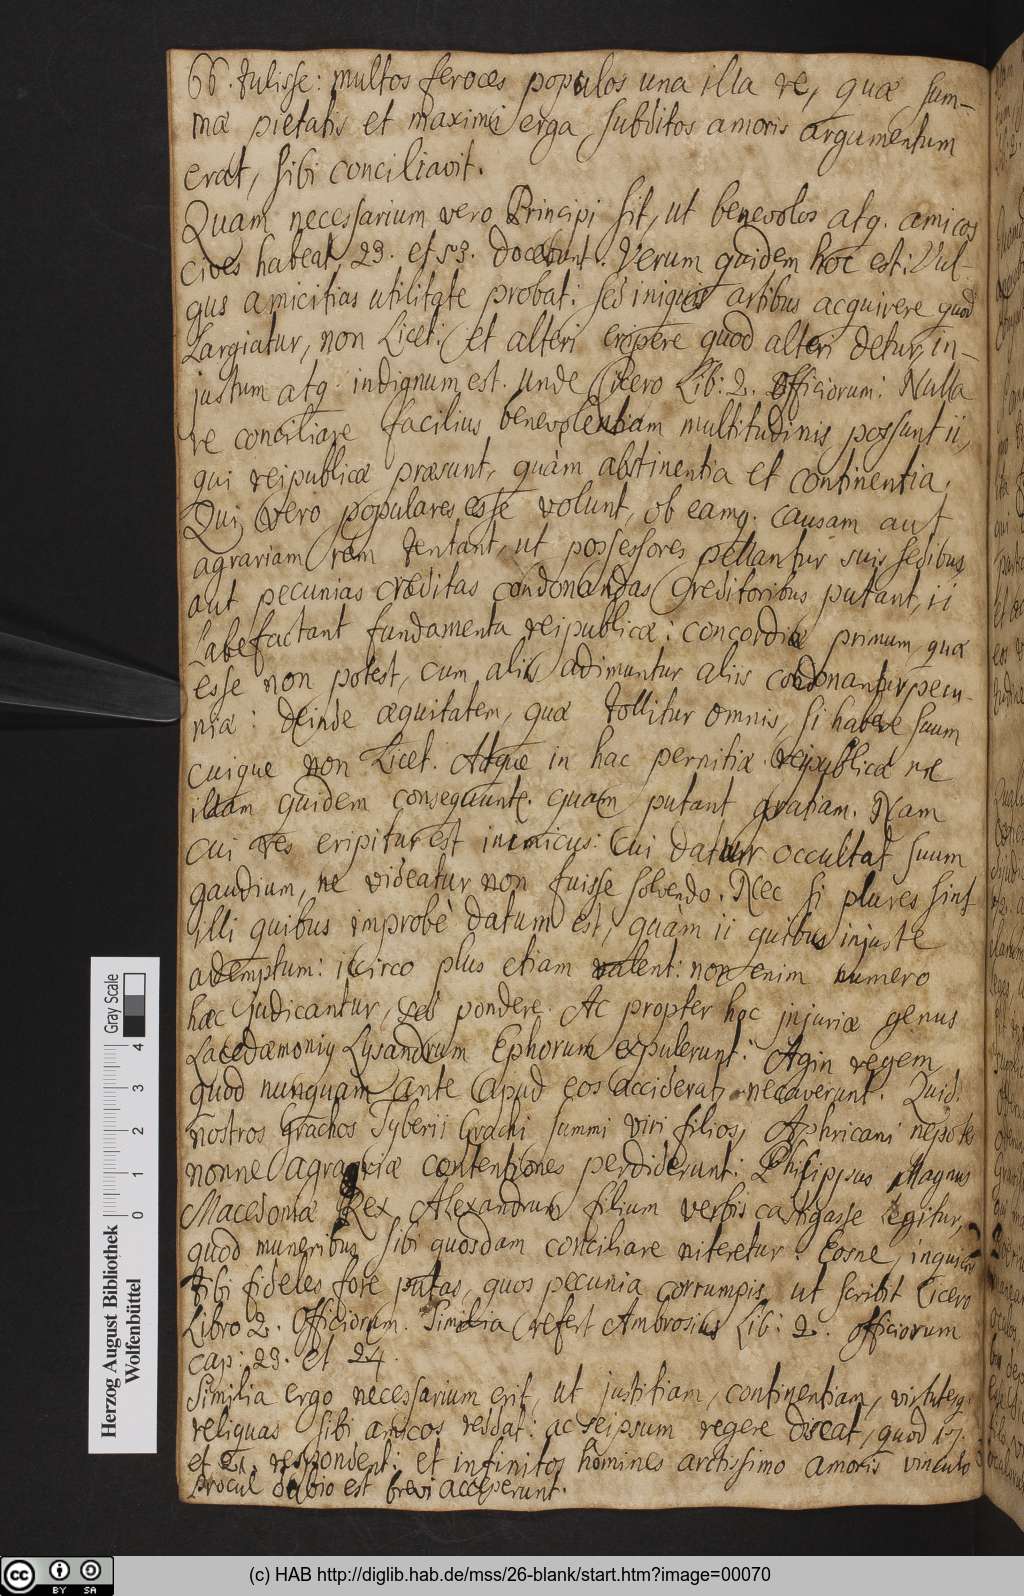 66. tulisse: multos feroces populos una illa re, quæ sum-
mæ pietatis et maximi erga subditos amoris argumentum
erat, sibi conciliavit.
Quam necessarium vero Principi sit, ut benevolos atq. amicos
cives habeat 23. et 53. docebunt. Verum quidem hoc est: Vul-
gus amicitias utilitate probat: sed iniquis artibus acquirere quod
Largiatur, non Licet: et alteri eripere quod alteri detur, in-
justum atq. indignum est. Unde Cicero Lib: 2. Officiorum: Nulla
re conciliare facilius benevolentiam multitudinis possunt ii,
qui reipublicæ præsunt, quàm abstinentia et continentia.
Qui vero populares esse volunt, ob eamq. causam aut
agrariam rem tentant, ut possessores pellantur suis sedibus
aut pecunias creditas condonandas Creditoribus putant, ii
Labefactant fundamenta reipublicæ: concordiæ primum, quæ
esse non potest, cum aliis adimuntur aliis condonantur pecu-
niæ: deinde æquitatem, quæ tollitur omnis, si habere suum
cuique non Licet. Atque in hac pernitiæ reipublicæ ne
illam quidem consequunt. quam putant gratiam. Nam
cui res eripitur est inimicus: Cui datur occultat suum
gaudium, ne videatur non fuisse solvendo. Nec si plures sint
illi quibus improbè datum est, quàm ii quibus injuste
ademptum: iccirco plus etiam valent: non enim numero
hæc judicantur, sed pondere. Ac propter hoc injuriæ genus
Lacedæmonij Lysandrum Ephorum expulerunt: Agin regem,
quod nunquam ante apud eos acciderat, necaverunt. Quid:
nostros Grachos Tyberii Grachi summi viri filios, Aphricani nepotes
nonne agrariæ contentiones perdiderunt: Philippus Magnus
Macedoniæ Rex Alexandrum filium verbis castigasse Legitur,
quod muneribus sibi quosdam conciliare niteretur. Eosne, inquiens
tibi fideles fore putas, quos pecunia corrumpis, ut scribit Cicero
Libro 2. Officiorum. Similia refert Ambrosius Lib: 2. officiorum
cap: 23. et 24.
Similia ergo necessarium erit ut justitiam, continentiam, virtutesq.
reliquas sibi amicos reddat: ac seipsum regere discat, quod 17.
et 21. respondent: et infinitos homines arctissimo amoris vinculo
procul dubio est brevi acceperunt.
Gray Scale
0 1 2 3 4
Herzog August Bibliothek
Wolfenbüttel
cc BY SA
(c) HAB http://diglib.hab.de/mss/26-blank/start.htm?image=00070